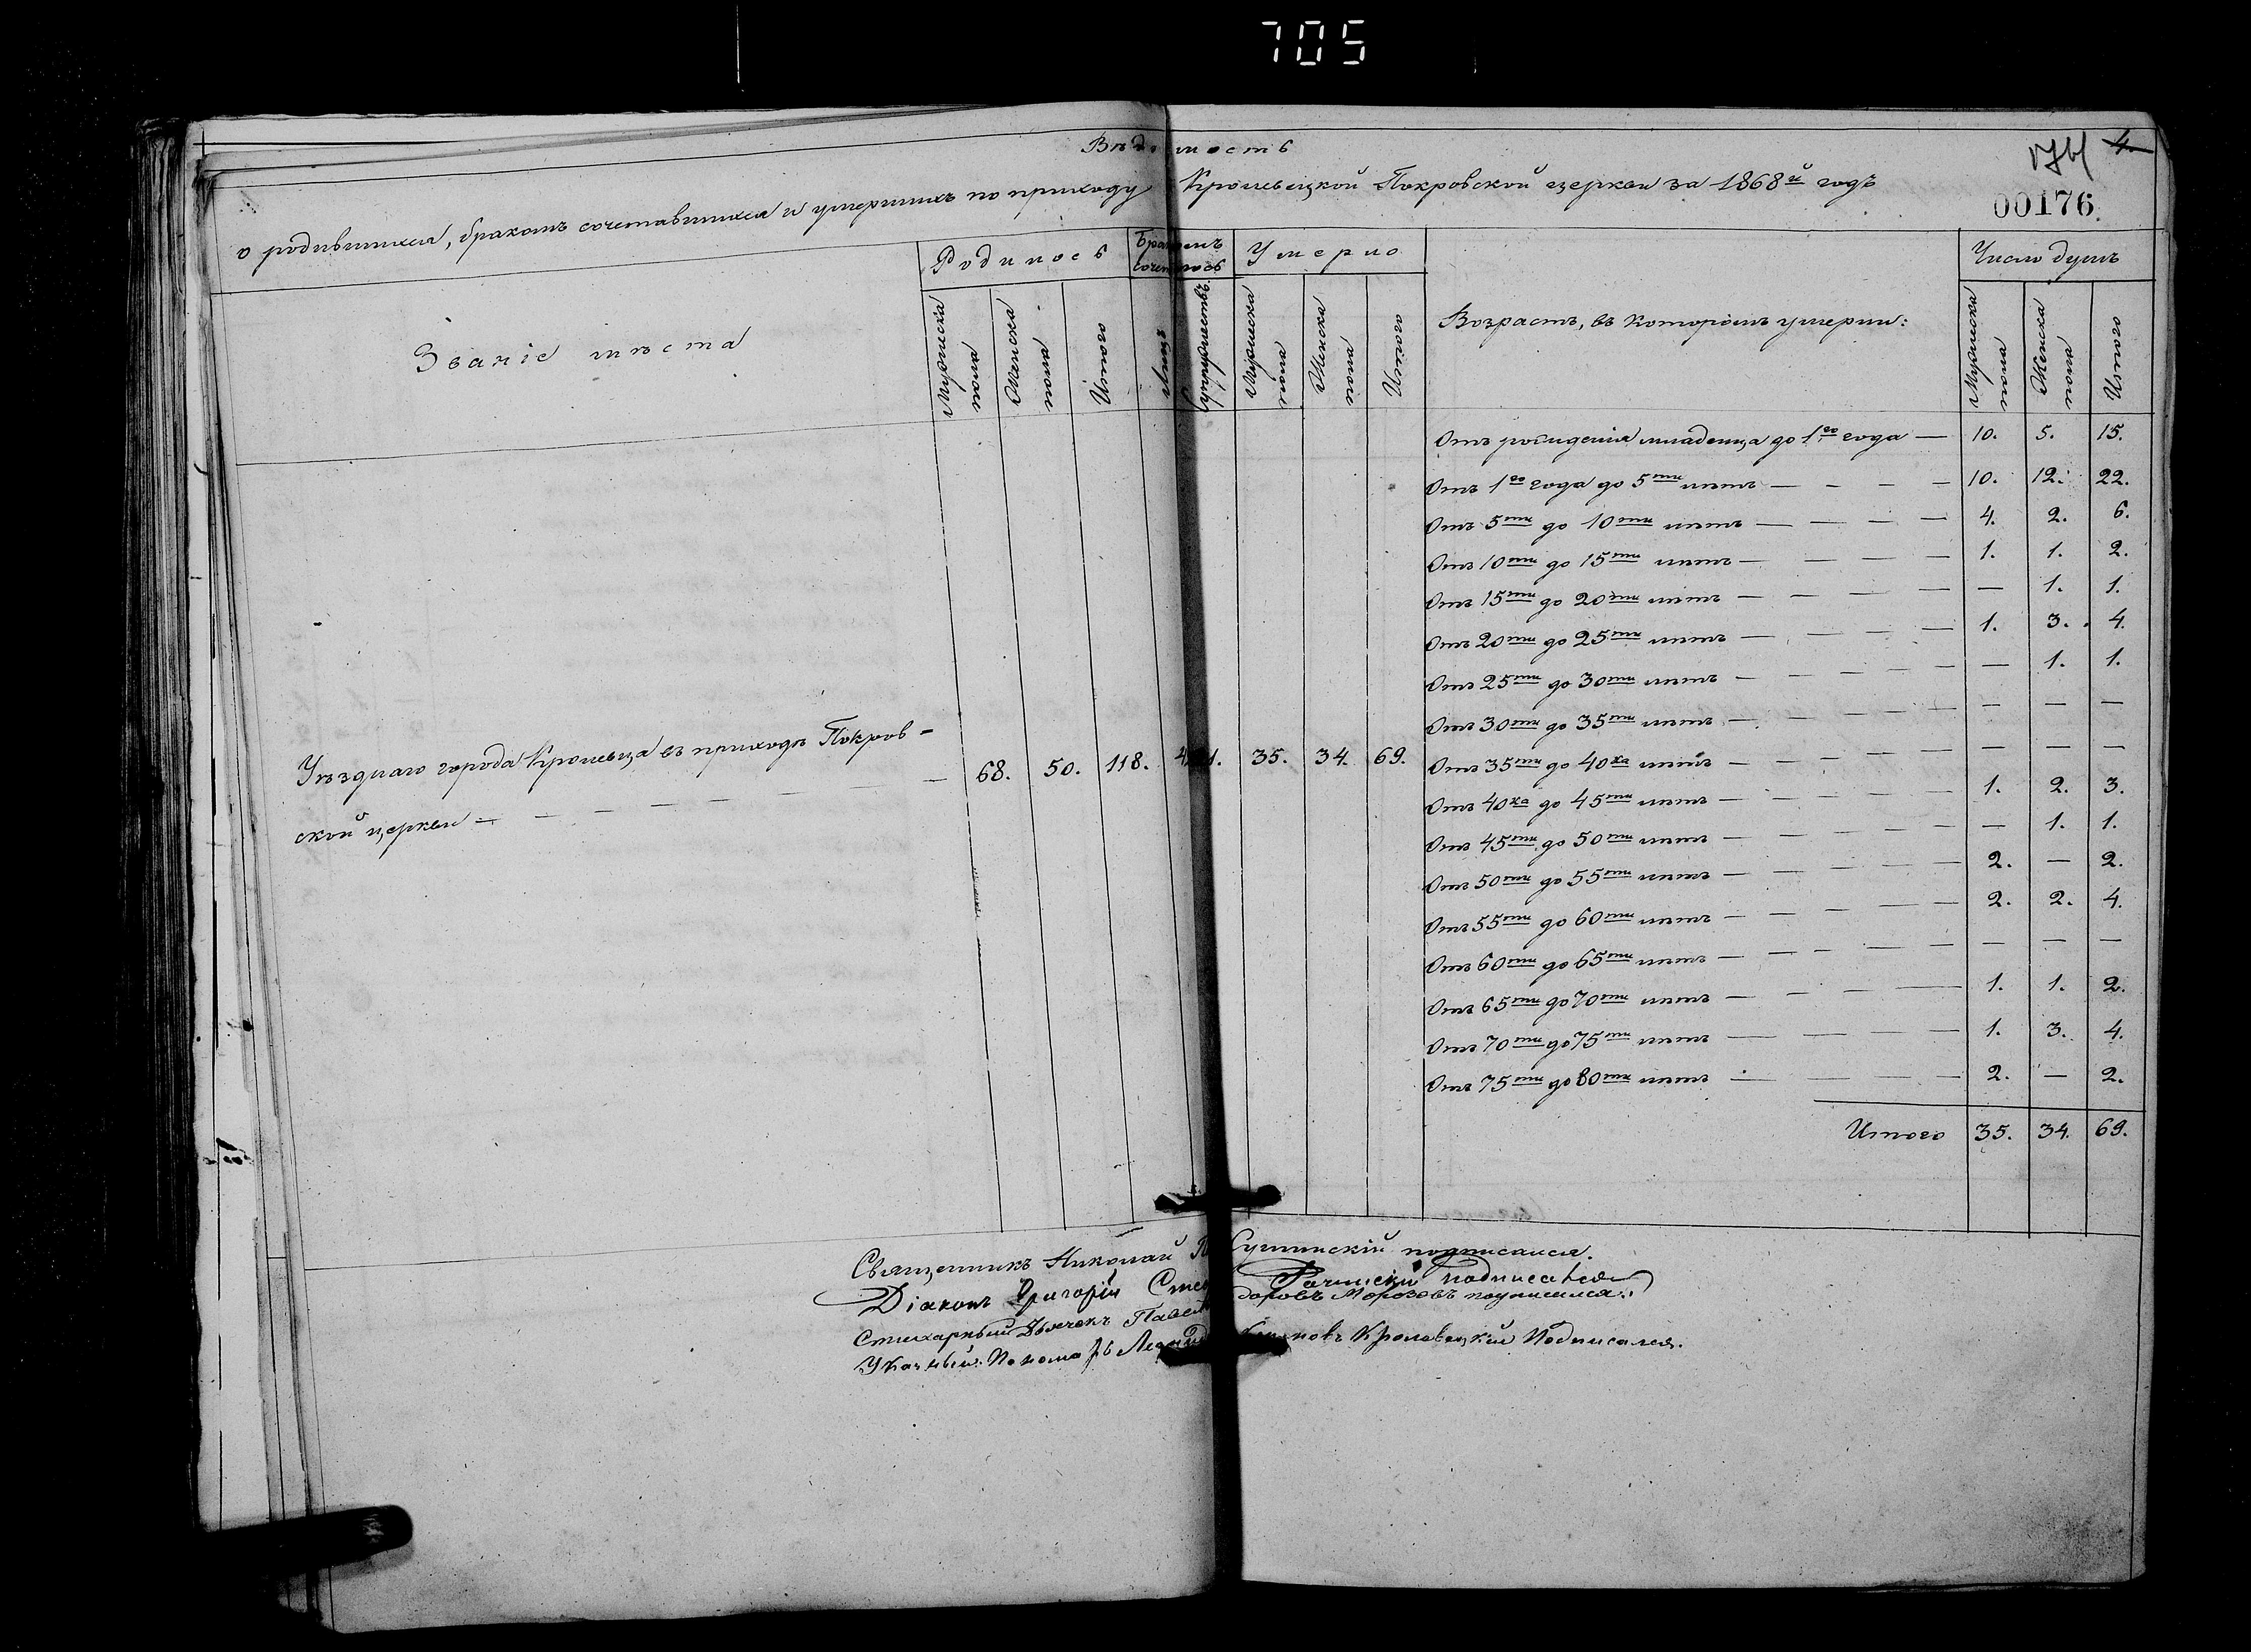 705
Вѣдомость
4
00176
о родившихся, бракомъ сочетавшихся и умершихъ по приходу Кролевецкой Покровской церкви за 1868й годъ
Званіе мѣста
Родилось
Бракомъ сочеталось
Умерло
Возрастъ, въ которомъ умерли:
Число душъ
Мужеска пола
Женска пола
Итого
Лицъ
Супружествъ
Мужеска пола
Женска пола
Итого
Мужеска пола
Женска пола
Итого
Уѣзднаго города Кролевца въ приходѣ Покров-
ской церкви — 68. 50. 118. 35. 34. 69.
Отъ рожденія младенца до 1го года — 10. 5. 15.
Отъ 1го года до 5ти лѣтъ — 10. 12. 22.
Отъ 5ти до 10ти лѣтъ — 4. 2. 6.
Отъ 10ти до 15ти лѣтъ — 1. 1. 2.
Отъ 15ти до 20ти лѣтъ — — 1. 1.
Отъ 20ти до 25ти лѣтъ — 1. 3. 4.
Отъ 25ти до 30ти лѣтъ — — 1. 1.
Отъ 30ти до 35ти лѣтъ — — — —
Отъ 35ти до 40ка лѣтъ — — — —
Отъ 40ка до 45ти лѣтъ — 1. 2. 3.
Отъ 45ти до 50ти лѣтъ — — 1. 1.
Отъ 50ти до 55ти лѣтъ — 2. — 2.
Отъ 55ти до 60ти лѣтъ — 2. 2. 4.
Отъ 60ти до 65ти лѣтъ — — — —
Отъ 65ти до 70ти лѣтъ — 1. 1. 2.
Отъ 70ти до 75ти лѣтъ — 1. 3. 4.
Отъ 75ти до 80ти лѣтъ — 2. — 2.
Итого 35. 34. 69.
Священникъ Николай Сулимскій подписался.
Діаконъ Григорій подписался
Стихарный Дьячокъ Морозовъ подписался.
Указный Пономарь Кролевецкій Подписался.